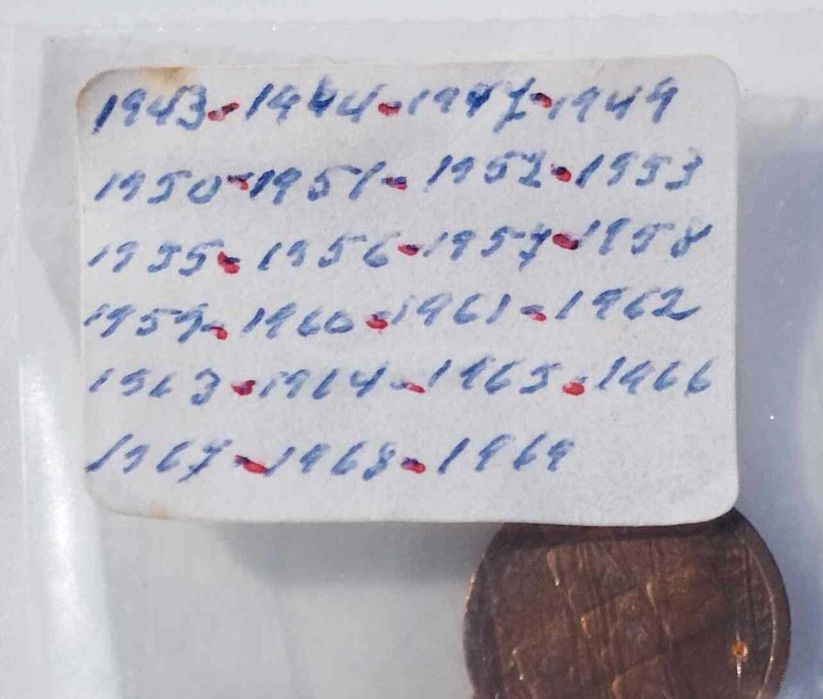 1943-1944-1947-1949
1950-1951-1952-1953
1955-1956-1957-1958
1959-1960-1961-1962
1963-1964-1965-1966
1967-1968-1969